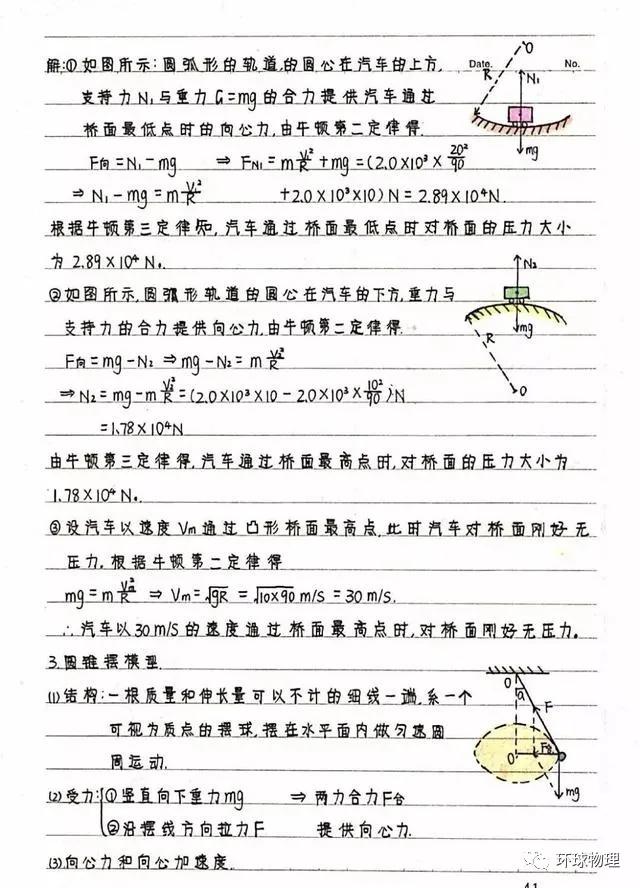 Date. No.
解:①如图所示:圆弧形的轨道的圆心在汽车的上方,
支持力N₁与重力G=mg的合力提供汽车通过
桥面最低点时的向心力,由牛顿第二定律得.
F向=N₁-mg ⇒ FN₁=m V₁²/R +mg=(2.0×10³× 20²/90
⇒ N₁-mg=m V₁²/R +2.0×10³×10)N=2.89×10⁴N.
根据牛顿第三定律知,汽车通过桥面最低点时对桥面的压力大小
为 2.89×10⁴N。
②如图所示,圆弧形轨道的圆心在汽车的下方,重力与
支持力的合力提供向心力,由牛顿第二定律得.
F向=mg-N₂ ⇒mg-N₂=m V₂²/R
⇒N₂=mg-m V₂²/R =(2.0×10³×10-2.0×10³× 10²/90 )N
=1.78×10⁴N
由牛顿第三定律得,汽车通过桥面最高点时,对桥面的压力大小为
1.78×10⁴N。
③设汽车以速度Vm通过凸形桥面最高点,此时汽车对桥面刚好无
压力,根据牛顿第二定律得
mg=m Vm²/R ⇒Vm=√gR =√10×90 m/s=30m/s.
∴汽车以30m/s的速度通过桥面最高点时,对桥面刚好无压力。
3.圆锥摆模型.
(1)结构:一根质量和伸长量可以不计的细线一端,系一个
可视为质点的摆球,摆在水平面内做匀速圆
周运动.
(2)受力:①竖直向下重力mg ⇒ 两力合力F合
②沿摆线方向拉力F 提供向心力.
(3)向心力和向心加速度.
O
R
N₁
mg
N₂
mg
R
O
O
α
F
F合
O'
mg
环球物理
41